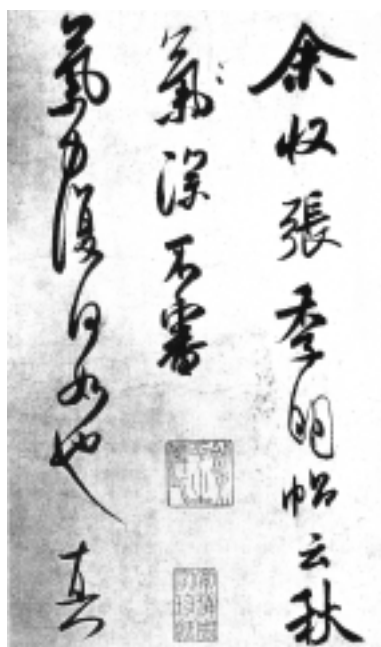 余收張季明帖云秋
氣深不審
氣力復何如也真